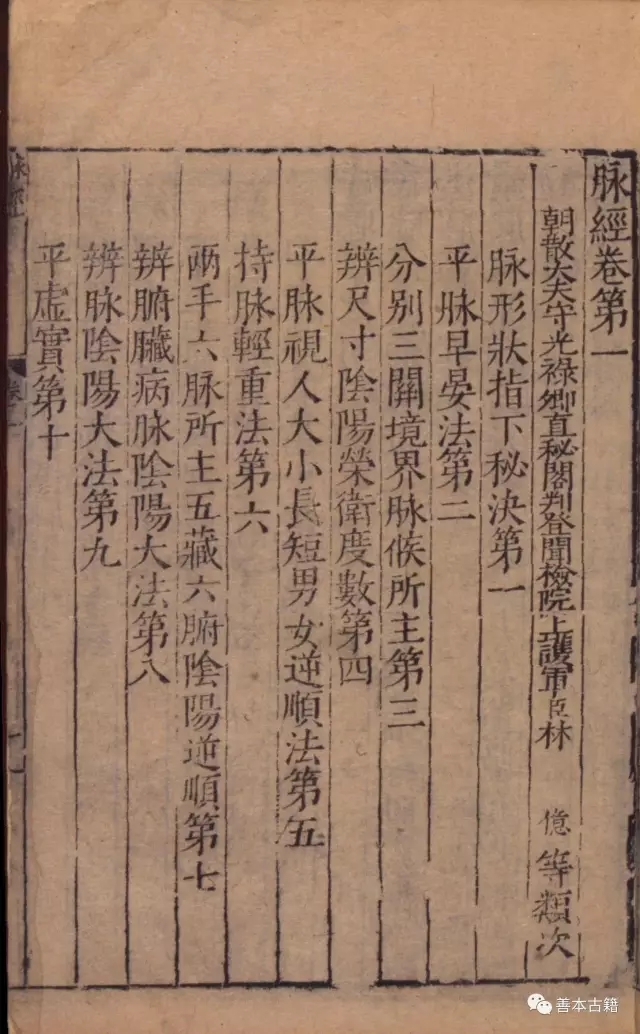 脉經卷第一
朝散大夫守光祿卿直秘閣判登聞檢院上護軍臣林 億等類次
脉形狀指下秘決第一
平脉早晏法第二
分别三關境界脉候所主第三
辨尺寸陰陽榮衛度數第四
平脉視人大小長短男女逆順法第五
持脉輕重法第六
兩手六脉所主五藏六腑陰陽逆順第七
辨腑臟病脉陰陽大法第八
辨脉陰陽大法第九
平虛實第十
脉經
善本古籍